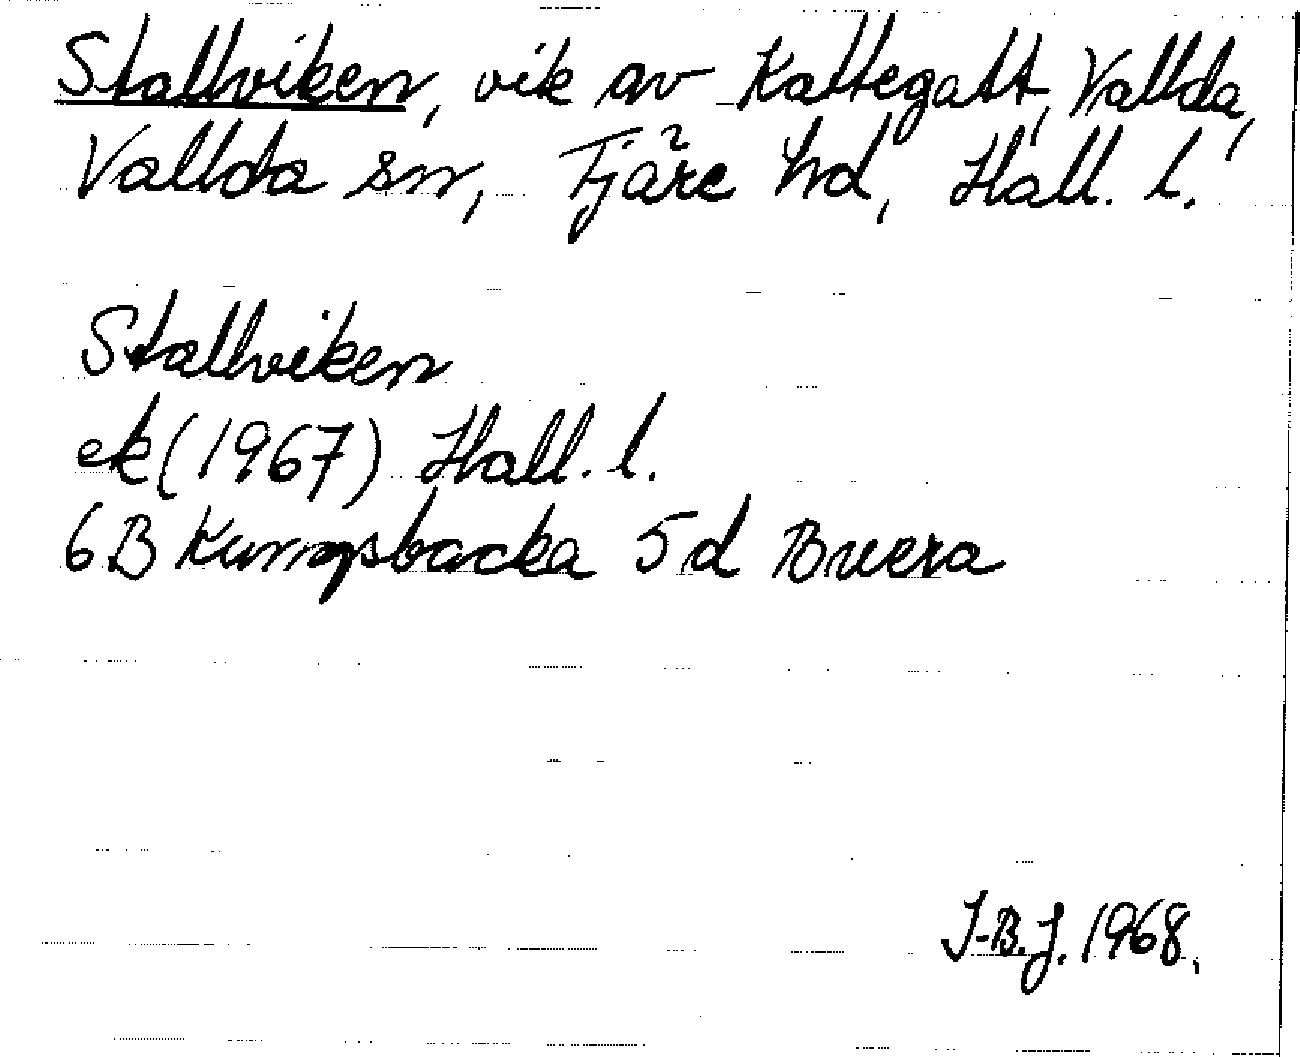 Stallviken, vik av Kattegatt, Vallda,
Vallda sn, Fjäre hd, Hall. l.
Stallviken
ek (1967) Hall. l.
6B Kungsbacka 5d Buera
J-B.J. 1968.